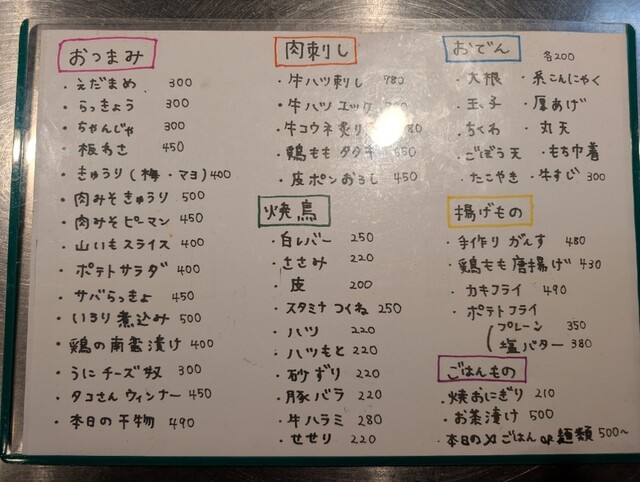 おつまみ
・えだまめ 300
・らっきょう 300
・ちゃんじゃ 300
・板わさ 450
・きゅうり(梅・マヨ)400
・肉みそきゅうり 500
・肉みそピーマン 450
・山いもスライス 400
・ポテトサラダ 400
・サバらっきょ 450
・いろり煮込み 500
・鶏の南蛮漬け 400
・うにチーズ奴 300
・タコさんウィンナー 450
・本日の干物 490
肉刺し
・牛ハツ刺し 780
・牛ハツユッケ
・牛コウネ炙り
・鶏ももタタキ
・皮ポンおろし 450
焼鳥
・白レバー 250
・ささみ 220
・皮 200
・スタミナつくね 250
・ハツ 220
・ハツもと 220
・砂ずり 220
・豚バラ 220
・牛ハラミ 280
・せせり 220
おでん 各200
・大根 ・糸こんにゃく
・玉子 ・厚あげ
・ちくわ ・丸天
・ごぼう天 ・もち巾着
・たこやき ・牛すじ 300
揚げもの
・手作りがんす 480
・鶏もも唐揚げ 430
・カキフライ 490
・ポテトフライ
プレーン 350
塩バター 380
ごはんもの
・焼おにぎり 210
・お茶漬け 500
・本日の〆ごはん or 麺類 500〜